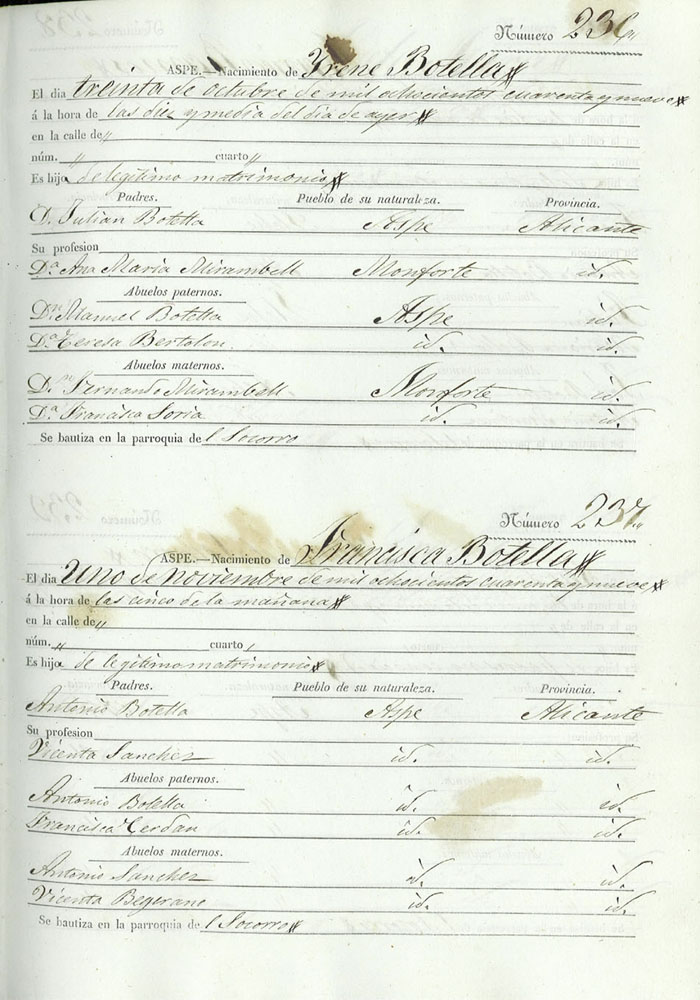 Número 236
ASPE.—Nacimiento de Irene Botella
El dia treinta de octubre de mil ochocientos cuarenta y nueve
á la hora de las diez y media del dia de ayer
en la calle de „
núm. „ cuarto „
Es hija de legitimo matrimonio
Padres. Pueblo de su naturaleza. Provincia.
D. Julian Botella Aspe Alicante
Su profesion
D.ª Ana Maria Mirambell Monforte id.
Abuelos paternos.
D.n Manuel Botella Aspe id.
D.ª Teresa Bertolon id. id.
Abuelos maternos.
D.n Fernando Mirambell Monforte id.
D.ª Francisca Soria id. id.
Se bautiza en la parroquia de l Socorro
Número 237
ASPE.—Nacimiento de Francisca Botella
El dia uno de noviembre de mil ochocientos cuarenta y nueve
á la hora de las cinco de la mañana
en la calle de „
núm. „ cuarto „
Es hija de legitimo matrimonio
Padres. Pueblo de su naturaleza. Provincia.
Antonio Botella Aspe Alicante
Su profesion
Vicenta Sanchez id. id.
Abuelos paternos.
Antonio Botella id. id.
Francisca Cerdan id. id.
Abuelos maternos.
Antonio Sanchez id. id.
Vicenta id. id.
Se bautiza en la parroquia de l Socorro